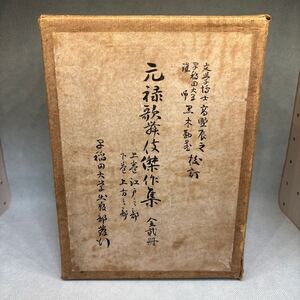 文学博士高野辰之
早稲田大学講師黒木勘蔵 校訂
元禄歌舞伎傑作集 全貳冊
上巻江戸之部
下巻上方之部
早稲田大学出版部発行